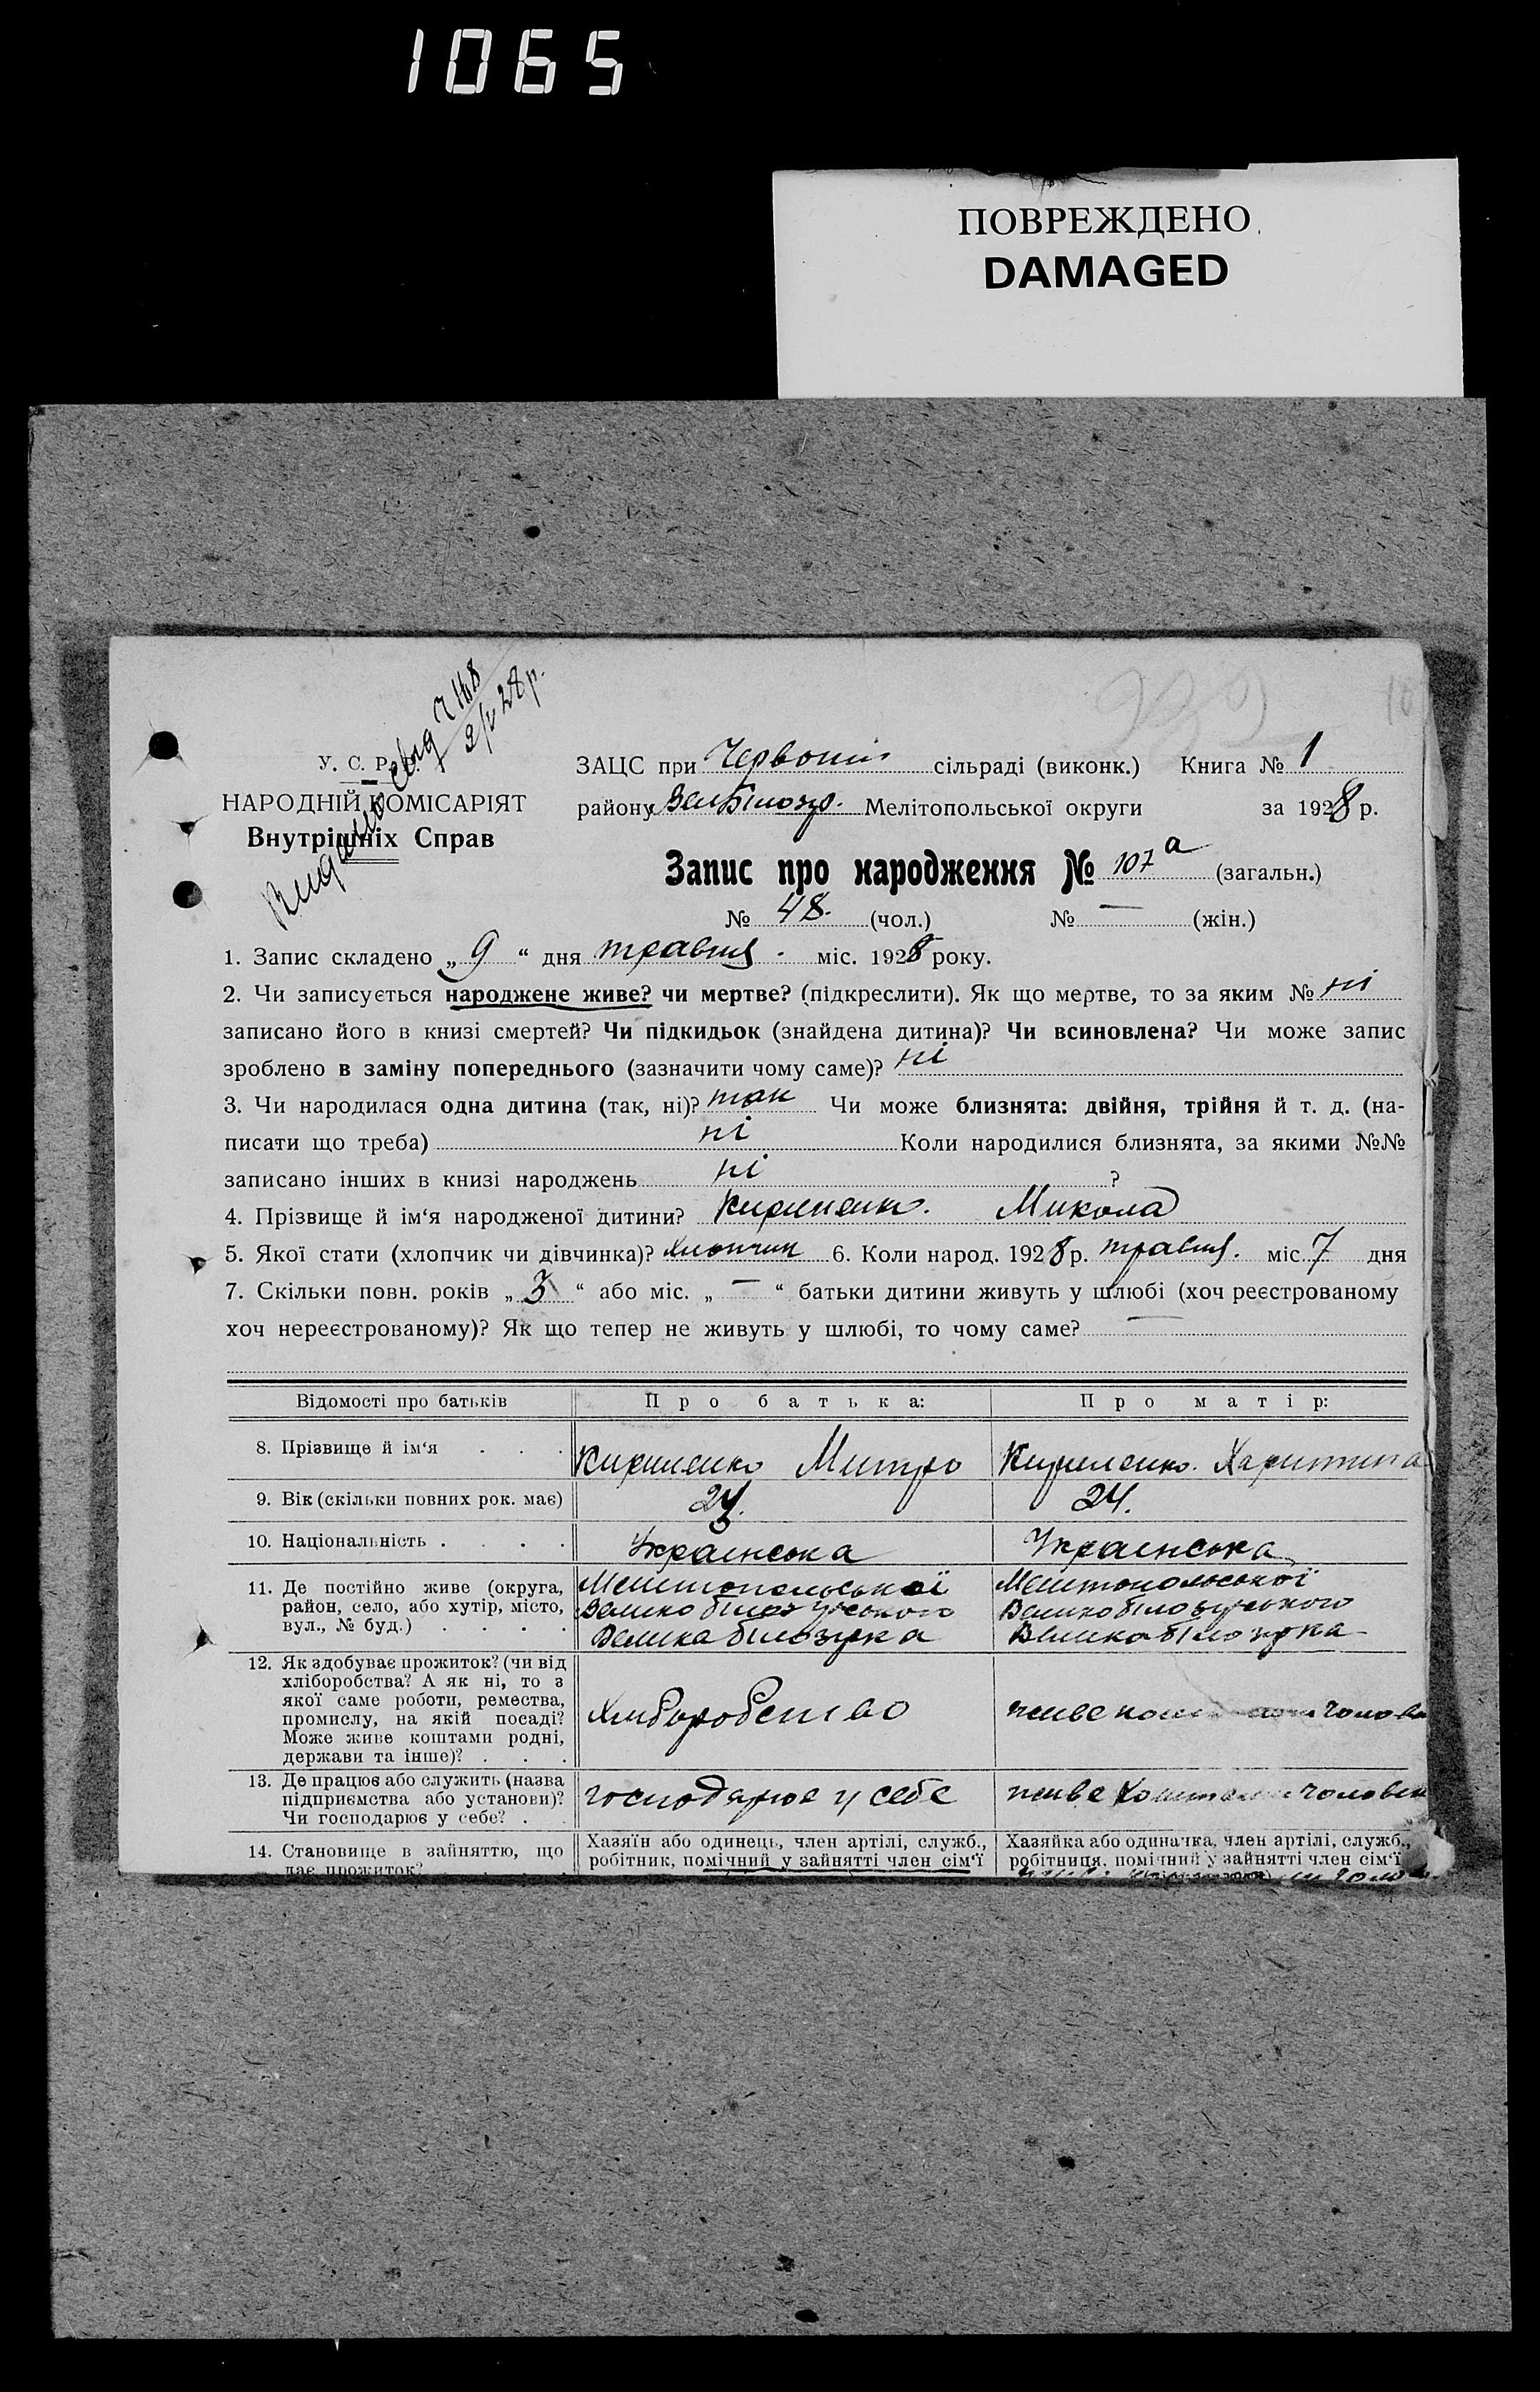 1065
ПОВРЕЖДЕНО
DAMAGED
Видано свід
У. С. Р. Р.
НАРОДНІЙ КОМІСАРІЯТ
Внутрішніх Справ
ЗАЦС при Червоній сільраді (виконк.) Книга № 1
району Вел Білозер. Мелітопольської округи за 1928 р.
Запис про народження № 107 а (загальн.)
№ 48. (чол.) № — (жін.)
1. Запис складено „ 9 “ дня травня . міс. 1928 року.
2. Чи записується народжене живе? чи мертве? (підкреслити). Як що мертве, то за яким № ні
записано його в книзі смертей? Чи підкидьок (знайдена дитина)? Чи всиновлена? Чи може запис
зроблено в заміну попереднього (зазначити чому саме)? ні
3. Чи народилася одна дитина (так, ні)? так Чи може близнята: двійня, трійня й т. д. (на-
писати що треба) ні Коли народилися близнята, за якими №№
записано інших в книзі народжень ні ?
4. Прізвище й ім‘я народженої дитини? Кириленко. Микола
5. Якої стати (хлопчик чи дівчинка)? хлопчик 6. Коли народ. 1928 р. травня. міс. 7 дня
7. Скільки повн. років „ 3 “ або міс. „ — “ батьки дитини живуть у шлюбі (хоч реєстрованому
хоч нереєстрованому)? Як що тепер не живуть у шлюбі, то чому саме? —
Відомості про батьків Про батька: Про матір:
8. Прізвище й ім‘я . . . Кириленко Митро Кириленко. Харитина
9. Вік (скільки повних рок. має) 24. 24.
10. Національність . . . . Українська Українська
11. Де постійно живе (округа, Мелітопольської Мелітопольської
район, село, або хутір, місто, Великобілозурського Великобілозурського
вул., № буд.) . . . . Великабілозурка Великабілозурка
12. Як здобуває прожиток? (чи від
хліборобства? А як ні, то з
якої саме роботи, ремества,
промислу, на якій посаді? Хліборобство живе чолові
Може живе коштами родні,
держави та інше)? . . .
13. Де працює або служить (назва
підприємства або установи)? господарює у себе живе коштами чолові
Чи господарює у себе? . .
14. Становище в зайняттю, що Хазяїн або одинець, член артілі, служб., Хазяйка або одиначка, член артілі, служб.,
дає прожиток? робітник, помічний у зайнятті член сім‘ї робітниця, помічний у зайнятті член сім‘ї